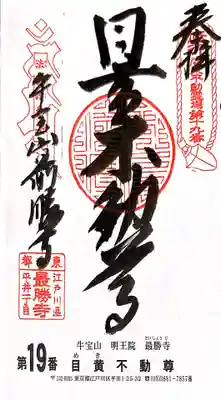 奉拝
不動霊場第十九番
目黄不動尊
牛宝山最勝寺
江戸川区
最勝寺
平井一丁目
さいしょうじ
牛宝山 明王院 最勝寺
き
第19番 目黄不動尊
東京都江戸川区平井1-25-32